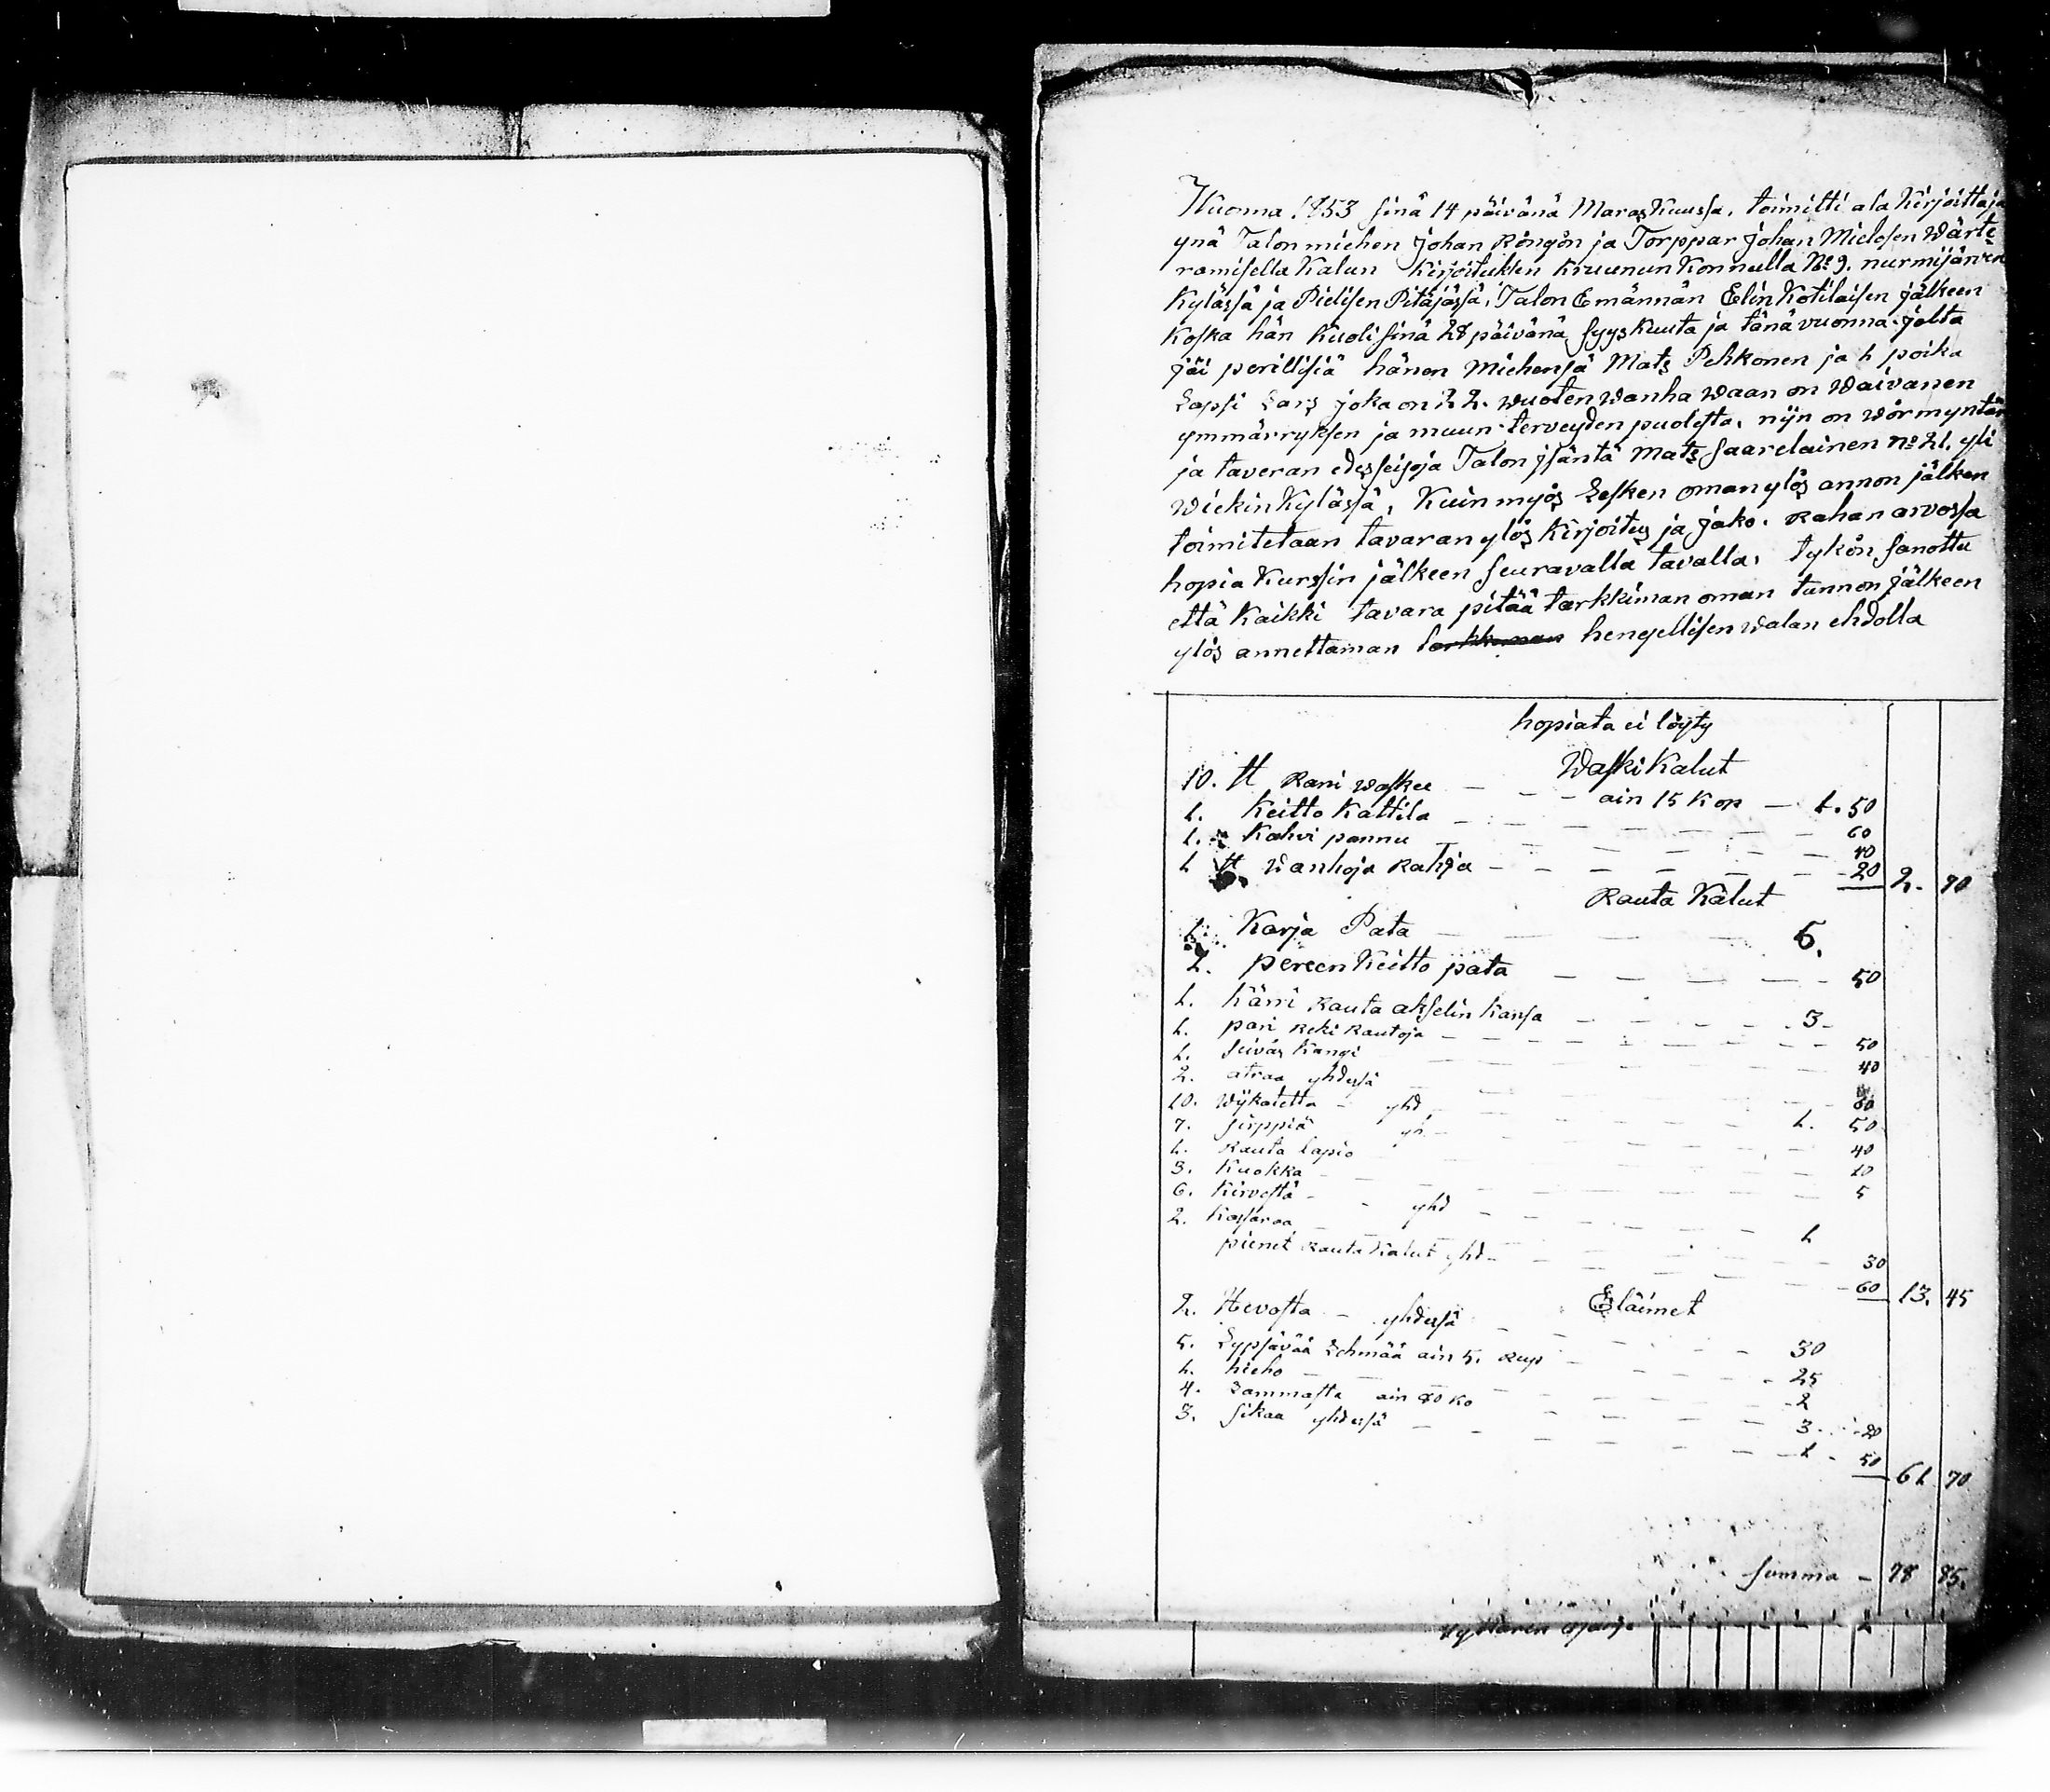 Wuonna 1853 sinä 14 päivänä Maraskuussa, toimitti ala Kirjoittaja
ynä Talon miehen Johan Röngön ja Torppar Johan Mielosen Wärte
ramisella Kalun Kirjoituksen Kruunun Konnulla No 9. nurmijärven
Kylässä ja Pielisen Pitäjässä, Talon Emännän Elin Kotilaisen jälkeen
Koska hän Kuoli sinä 28 päivänä syys Kuuta ja tänä vuonna. jolta
jäi perillisiä hänen Miehensä Mats Pehkonen ja 1 poika
Lapsi Lars joka on 22. wuoten wanha waan on Waivanen
ymmärryksen ja muun terveyden puolesta, niin on wörmyntär
ja taveran edesseisoja Talon jsäntä Mats Saarelainen No 21. yli
Wiekin Kylässä, Kuin myös Lesken oman ylös annon jälken
toimitetaan tavaran ylös Kirjoitus ja jako. Rahan arvossa
hopia Kurssin jälkeen seuravalla tavalla, tykön sanottu
että Kaikki tavara pitää tarkkiman oman tunnon jälkeen
ylös annettaman tarkkeman hengellisen walan ehdolla
hopiata ei löyty
Waski Kalut
10. ℔ Rani waskee — ain 15 Kop — 1. 50
1. Keitto Kattila — 60
1. Kahvi pannu — 40
1 ℔ Wanhoja Rahja — 20 2. 70
Rauta Kalut
1. Karja Pata — 5.
1. pereen Keitto pata — 50
1. härri Rauta akselin Kansa — 3 -
1. pari Reki Rautoja — 50
1. seiväs Kangi — 40
2. atraa yhdessä — 60
10. Wijkatetta - yhd — 1. 50
7. sirppiä yh — 40
1. Rauta lapio — 10
3. Kuokka — 5
6. Kirvestä - yhd — 1
2. Kassaraa — 30
pienet Rauta Kalut yhd — 60 13. 45
Eläimet
2. Hevosta — yhdessä — 30
5. Lypsävää Lehmää ain 5. Rup — 25
1. hieho — 2
4. Lammasta ain 80 Ko — 3. 20
3. sikaa yhdessä — 1 - 50 61 70
summa — 78 85.